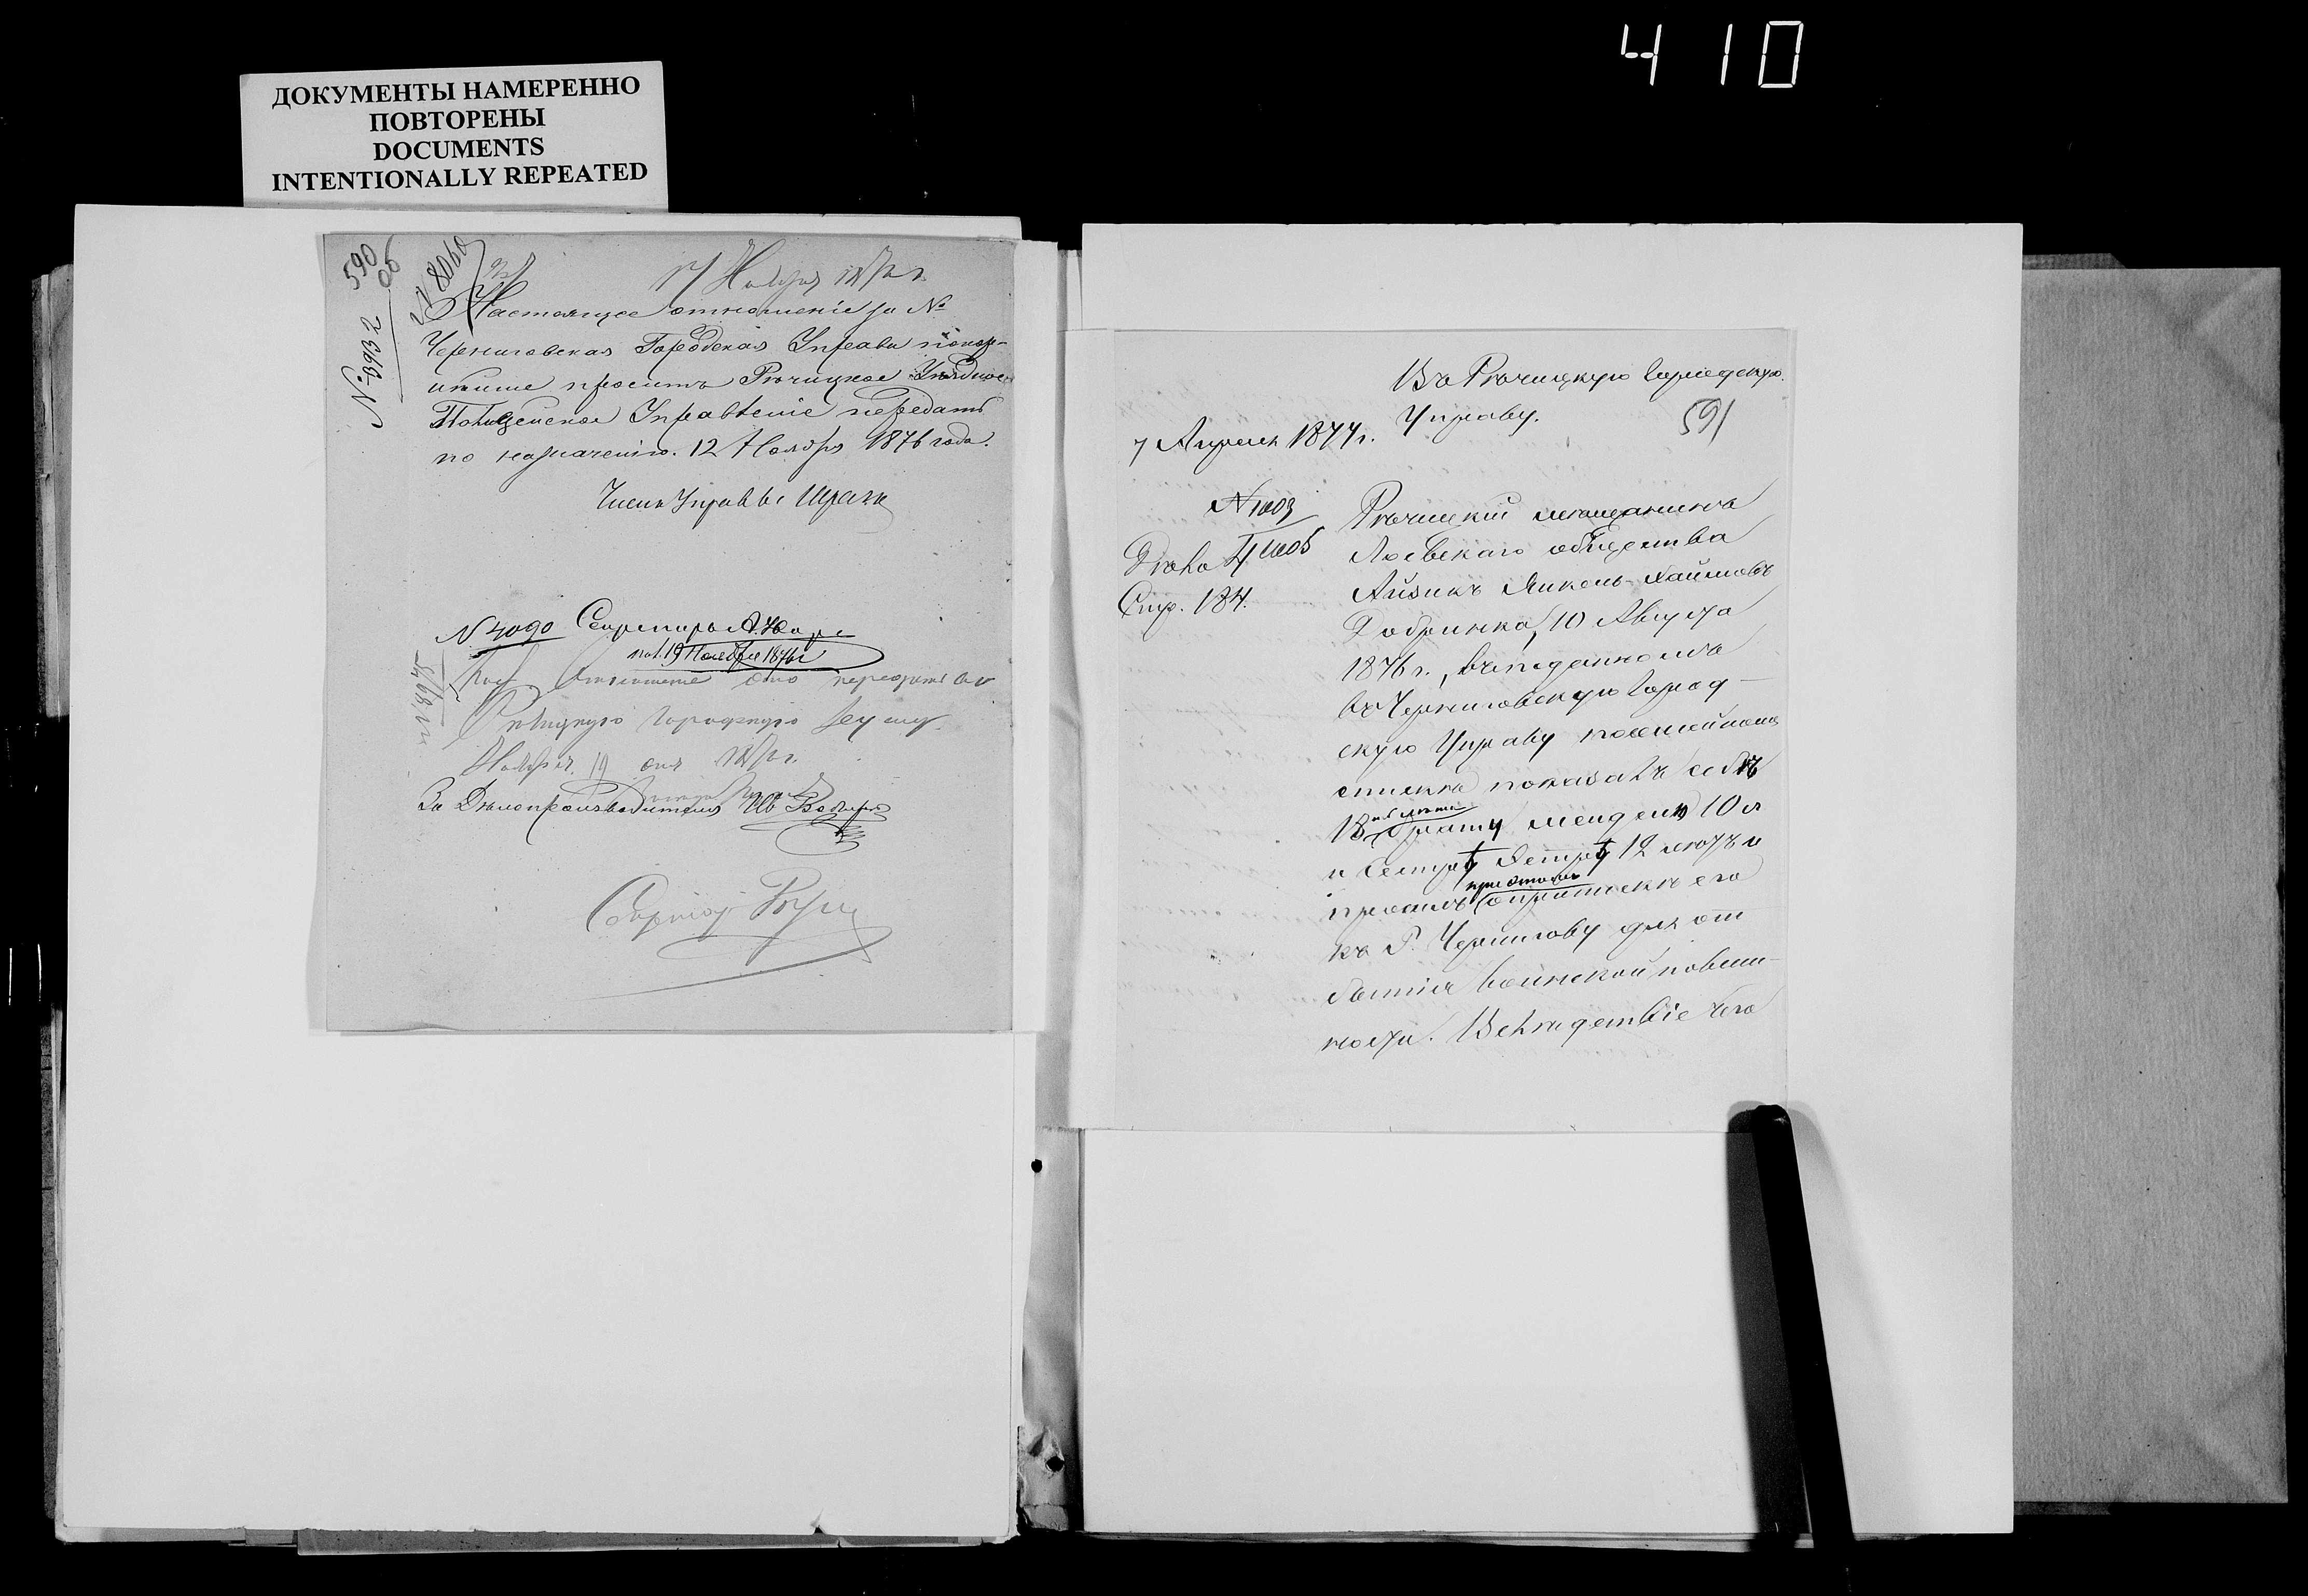 410
ДОКУМЕНТЫ НАМЕРЕННО
ПОВТОРЕНЫ
DOCUMENTS
INTENTIONALLY REPEATED
590
об
N: 3932
N 8060
17 Ноября 1876 г.
Настоящее отношеніе за №
Черниговская Городская Управа покор-
нѣйше проситъ Рѣчицкое Уѣздное
Полицейское Управленіе передать
по назначенію. 12 Ноября 1876 года.
Членъ Управы
N 4090 Секретарь
пол. 19 Ноября 1876 г
отношеніе передать въ
Рѣчицкую Городскую
Ноября 19 дня 1876 г.
За Дѣлопроизводителя
Въ Рѣчицкую Городскую
Управу.
591
7 Апреля 1877 г.
N 1003
Дѣло
Стр. 184.
Рѣчицкій мѣщанинъ
Лоевскаго общества
Айзикъ Янкель-Хаимовъ
Добринка, 10 Августа
1876 г., въ поданномъ
въ Черниговскую Город-
скую Управу посемейномъ
спискѣ показалъ себѣ
18 лѣтъ брату Менделю 10 л
и сестрѣ 12 лѣтъ и
просилъ о припискѣ его
къ г. Чернигову для от
быванія воинской повин-
ности. Вслѣдствіе чего